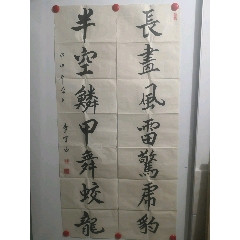 長畫風雷驚虎豹
半空鱗甲舞蛟龍